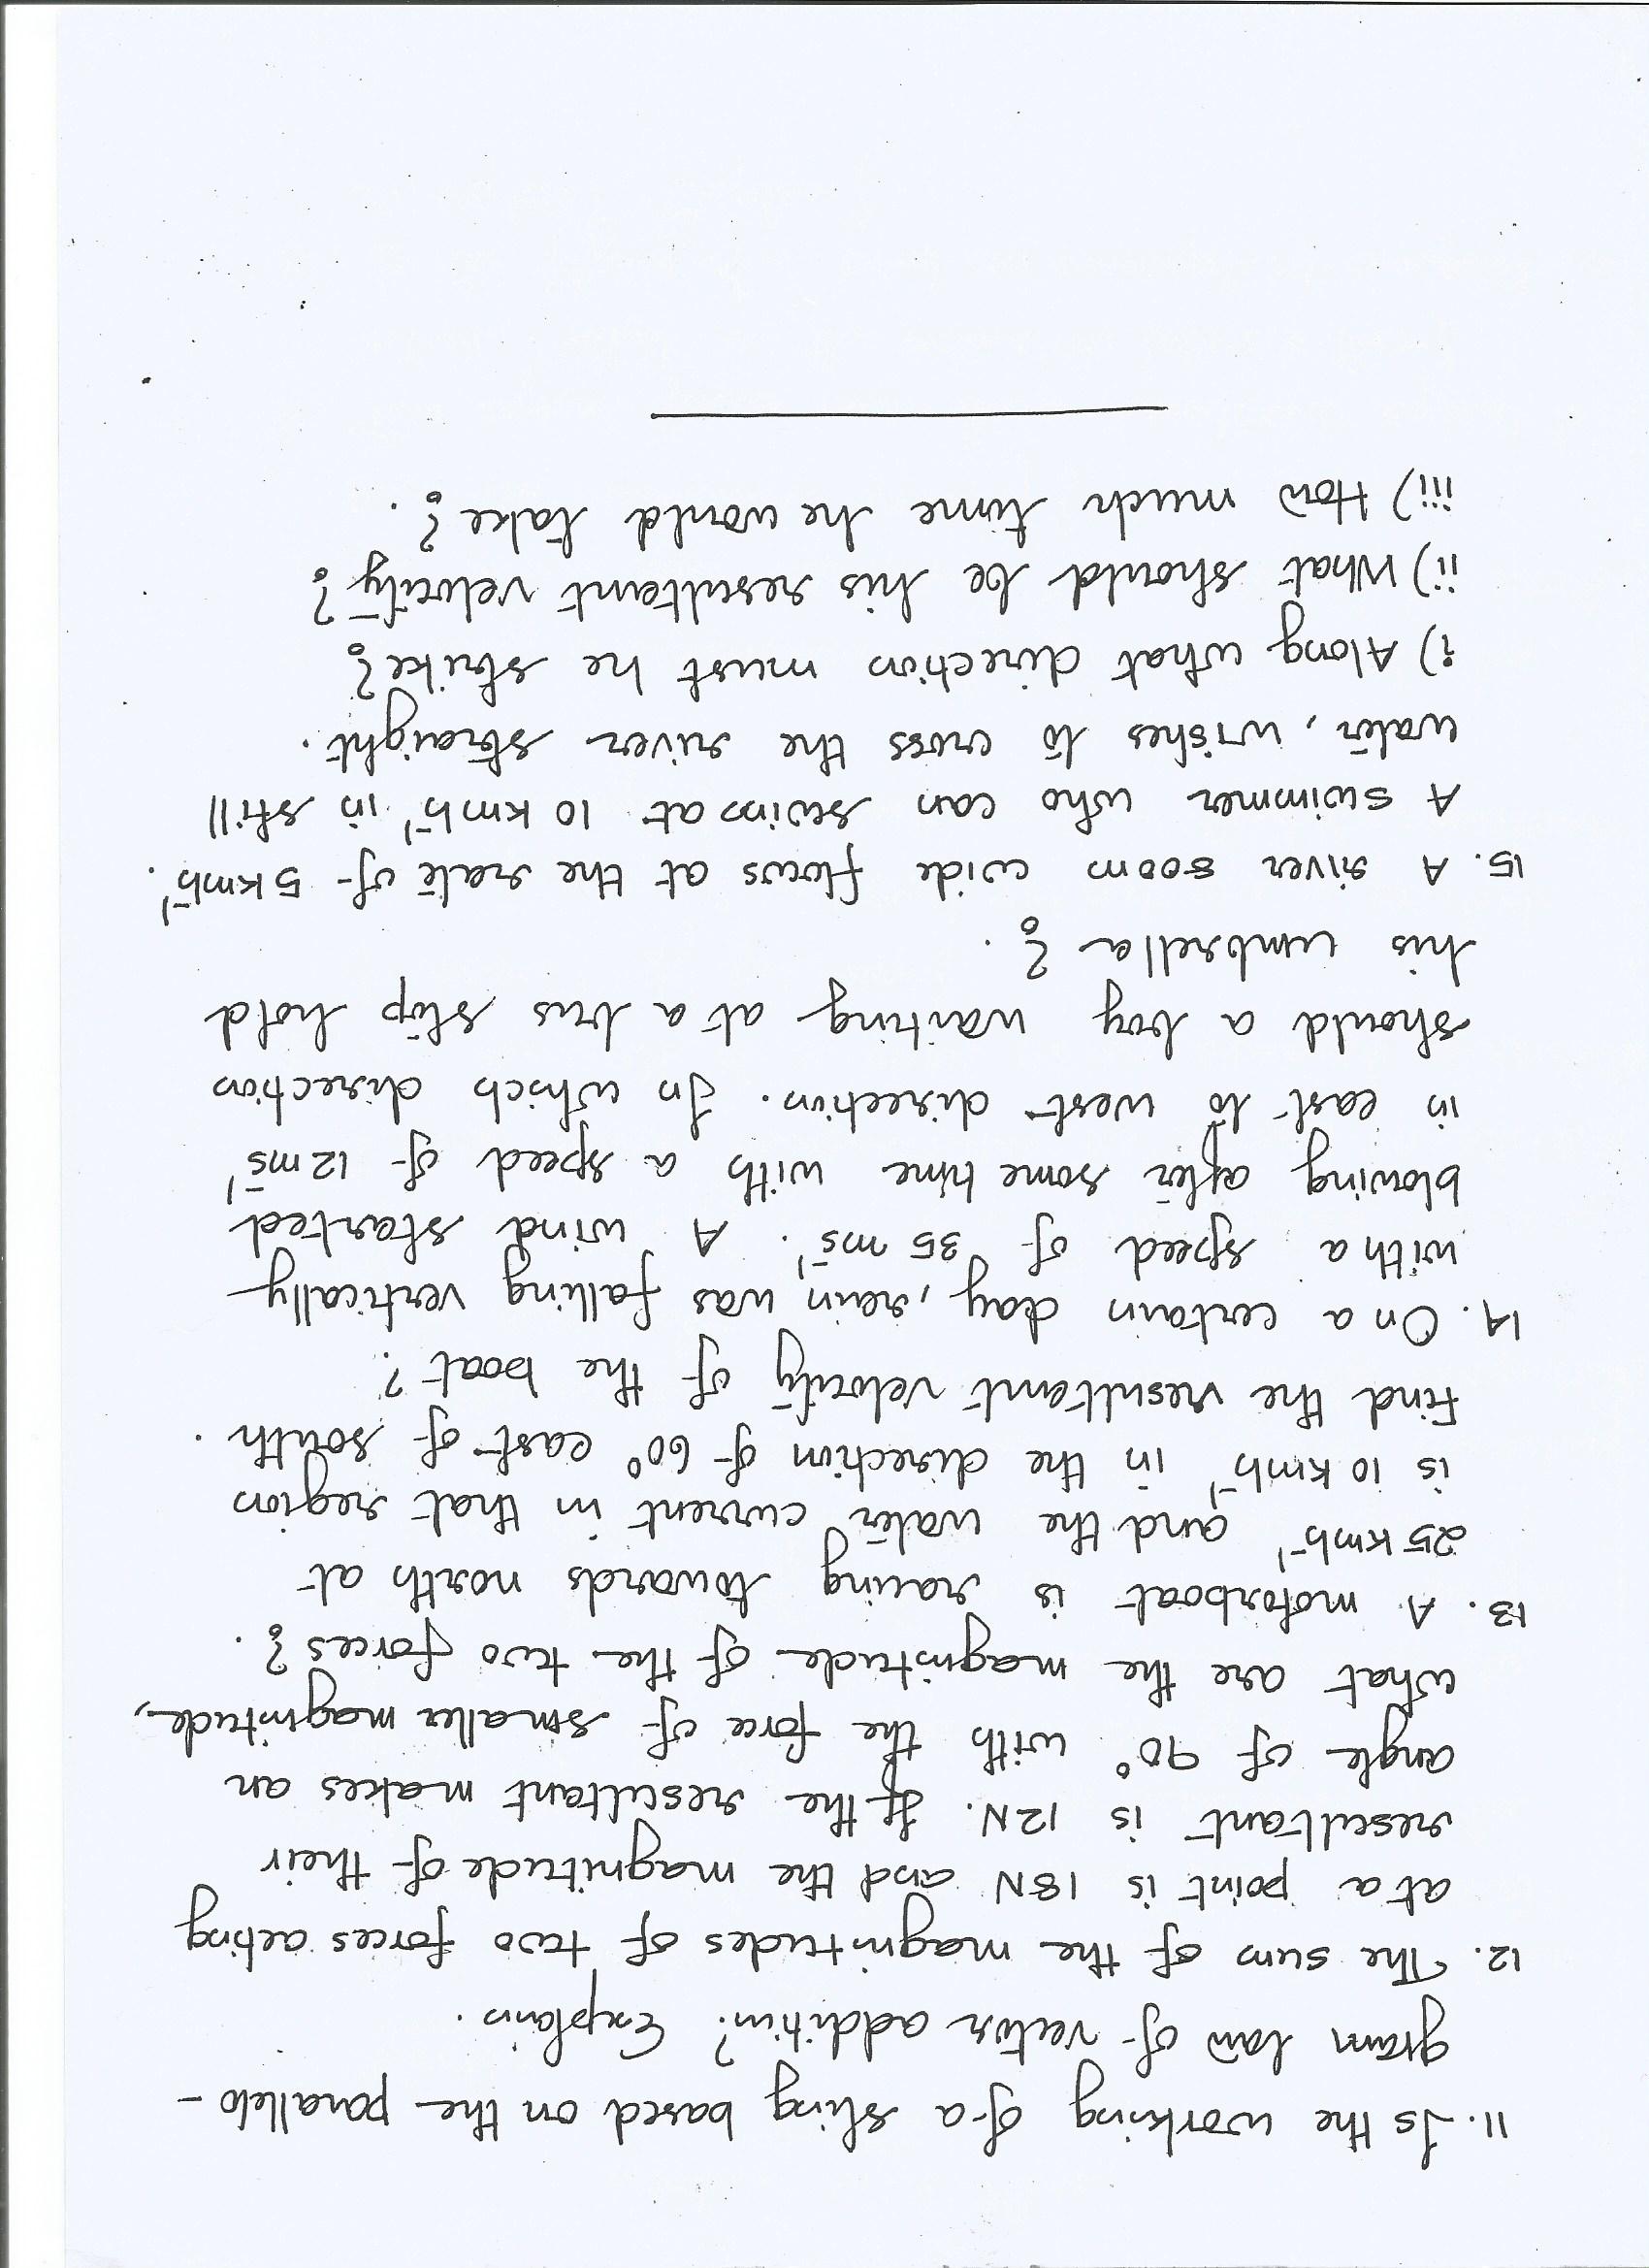 11. Is the working of a sling based on the parallelo-
gram law of vector addition? Explain.
12. The sum of the magnitudes of two forces acting
at a point is 18N and the magnitude of their
resultant is 12N. If the resultant makes an
angle of 90° with the force of smaller magnitude,
what are the magnitude of the two forces?.
13. A motorboat is racing towards north at
25 kmh⁻¹ and the water current in that region
is 10 kmh⁻¹ in the direction of 60° east of south.
Find the resultant velocity of the boat?
14. On a certain day, rain was falling vertically
with a speed of 35 ms⁻¹. A wind started
blowing after some time with a speed of 12 ms⁻¹
in east to west direction. In which direction
should a boy waiting at a bus stop hold
his umbrella?.
15. A river 800m wide flows at the rate of 5 kmh⁻¹.
A swimmer who can swim at 10 kmh⁻¹ in still
water, wishes to cross the river straight.
i) Along what direction must he strike?
ii) What should be his resultant velocity?
iii) How much time he would take?.